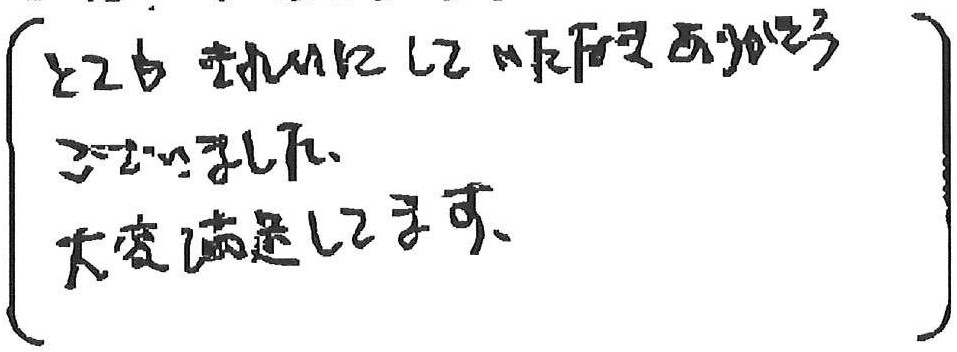 とても きれいにして いただき ありがとう
ございました、
大変満足してます、